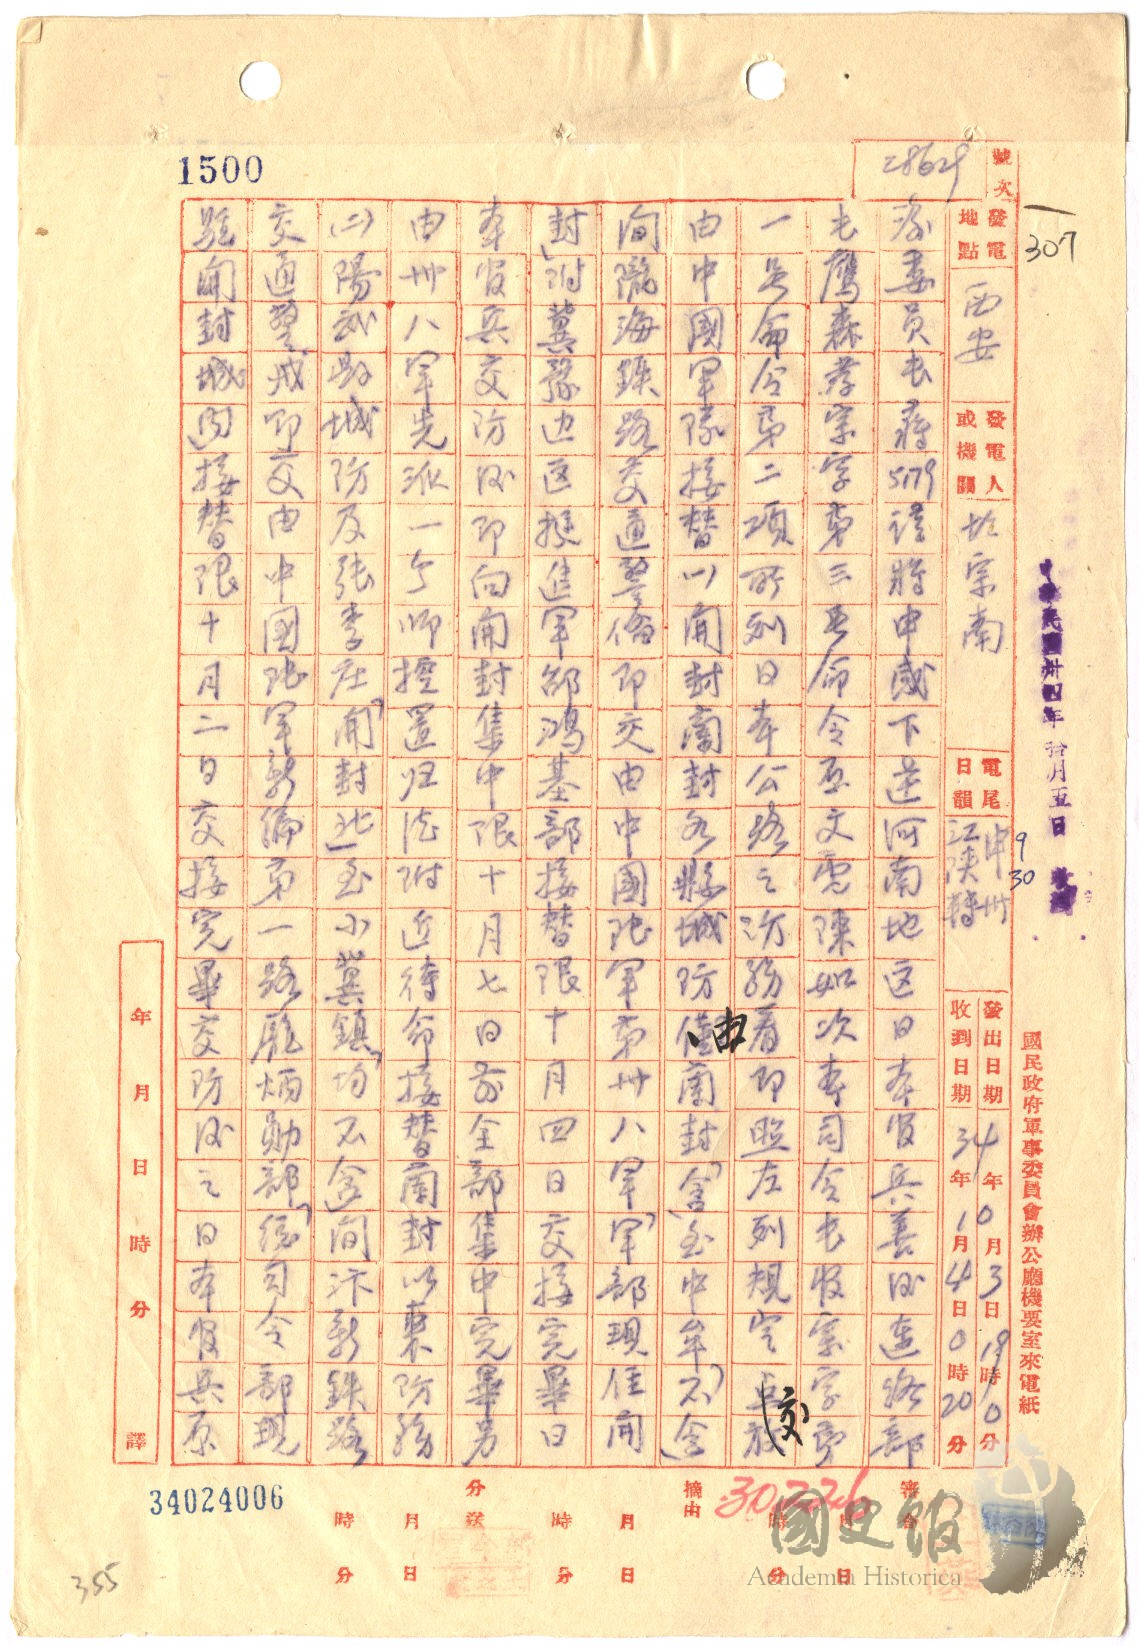 號次
307
發電地點 西安
發電人或機關 胡宗南
電尾日韻 申卅
江陝轉
9/30
發出日期 34年10月3日19時0分
收到日期 34年10月4日0時20分
中華民國卅四年拾月五日
國民政府軍事委員會辦公廳機要室來電紙
1500
委員長蔣5179謹將申感下送河南地区日本官兵善後連絡部
长鷹森孝宗字第三号命令亞文電陳如次本司令长官宗字第
一号命令第二項所列日本公路之防務着即照左列規定交
由中國軍隊接替(一)開封蘭封各縣城防由蘭封(含)至中牟(不含)
间隴海鉄路交通警備即交由中國陸軍第卅八軍(軍部現住開
封)附冀豫边区挺進軍邵鴻基部接替限十月四日交接完畢日
本官兵交防後即向開封集中限十月七日前全部集中完畢另
由卅八軍先派一个师控置归德附近待命接替蘭封以東防務
(二)陽武縣城防及張李庄(開封北)至小冀鎮(均不含)间汴新鉄路
交通警戒即交由中國陸軍新編第一路龐炳勛部(總司令部現
駐開封城内)接替限十月二日交接完畢交防後之日本官兵原
年 月 日 時 分 譯
審命 月 日 時 分
摘由 月 日 時 分
分送 月 日 時 分
34024006
355
國史館
Academia Historica